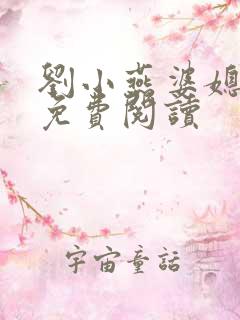 劉小燕婆媳
免費閱讀
宇宙童話